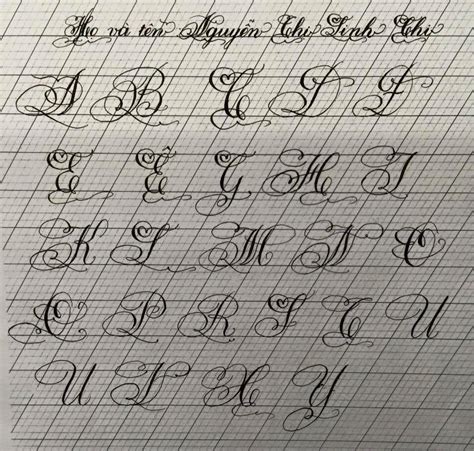 Họ và tên Nguyễn Thị
A B C D Đ
E Ê G H I
K L M N O
Q P R S T U
U V X Y